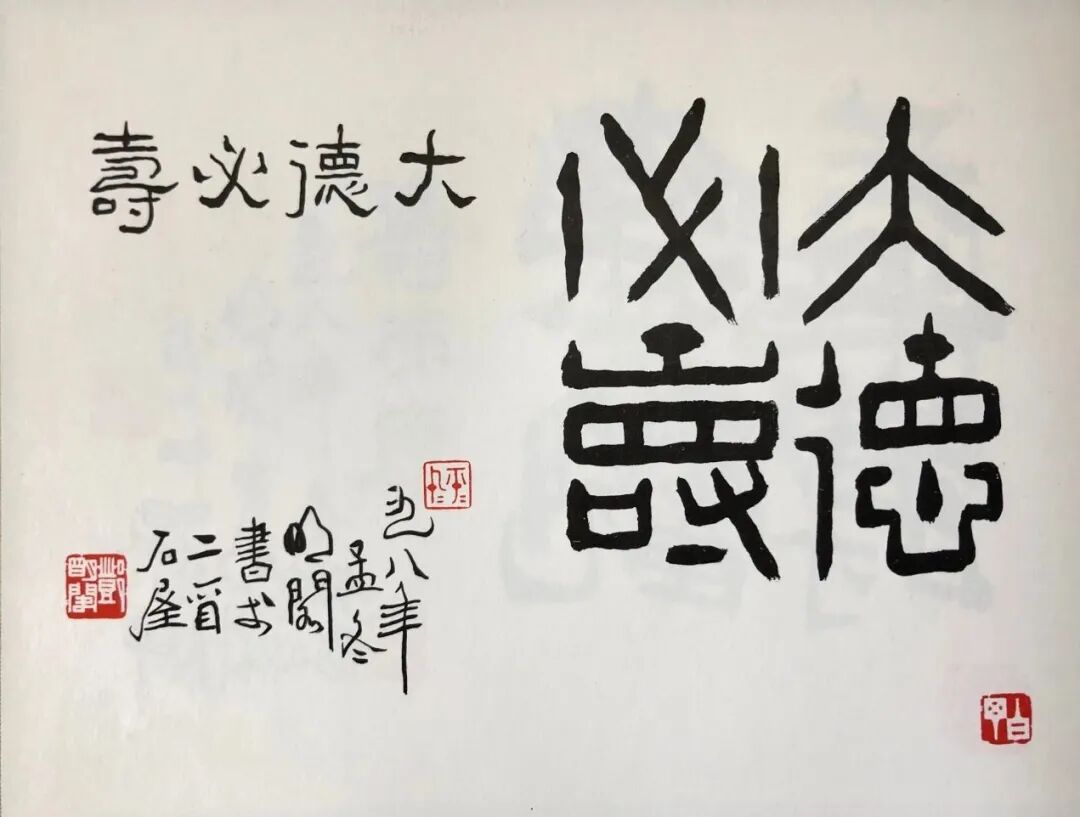 大德
必壽
大德必壽
九八年
孟冬
明閣
書于
二百
石屋
鄧明閣